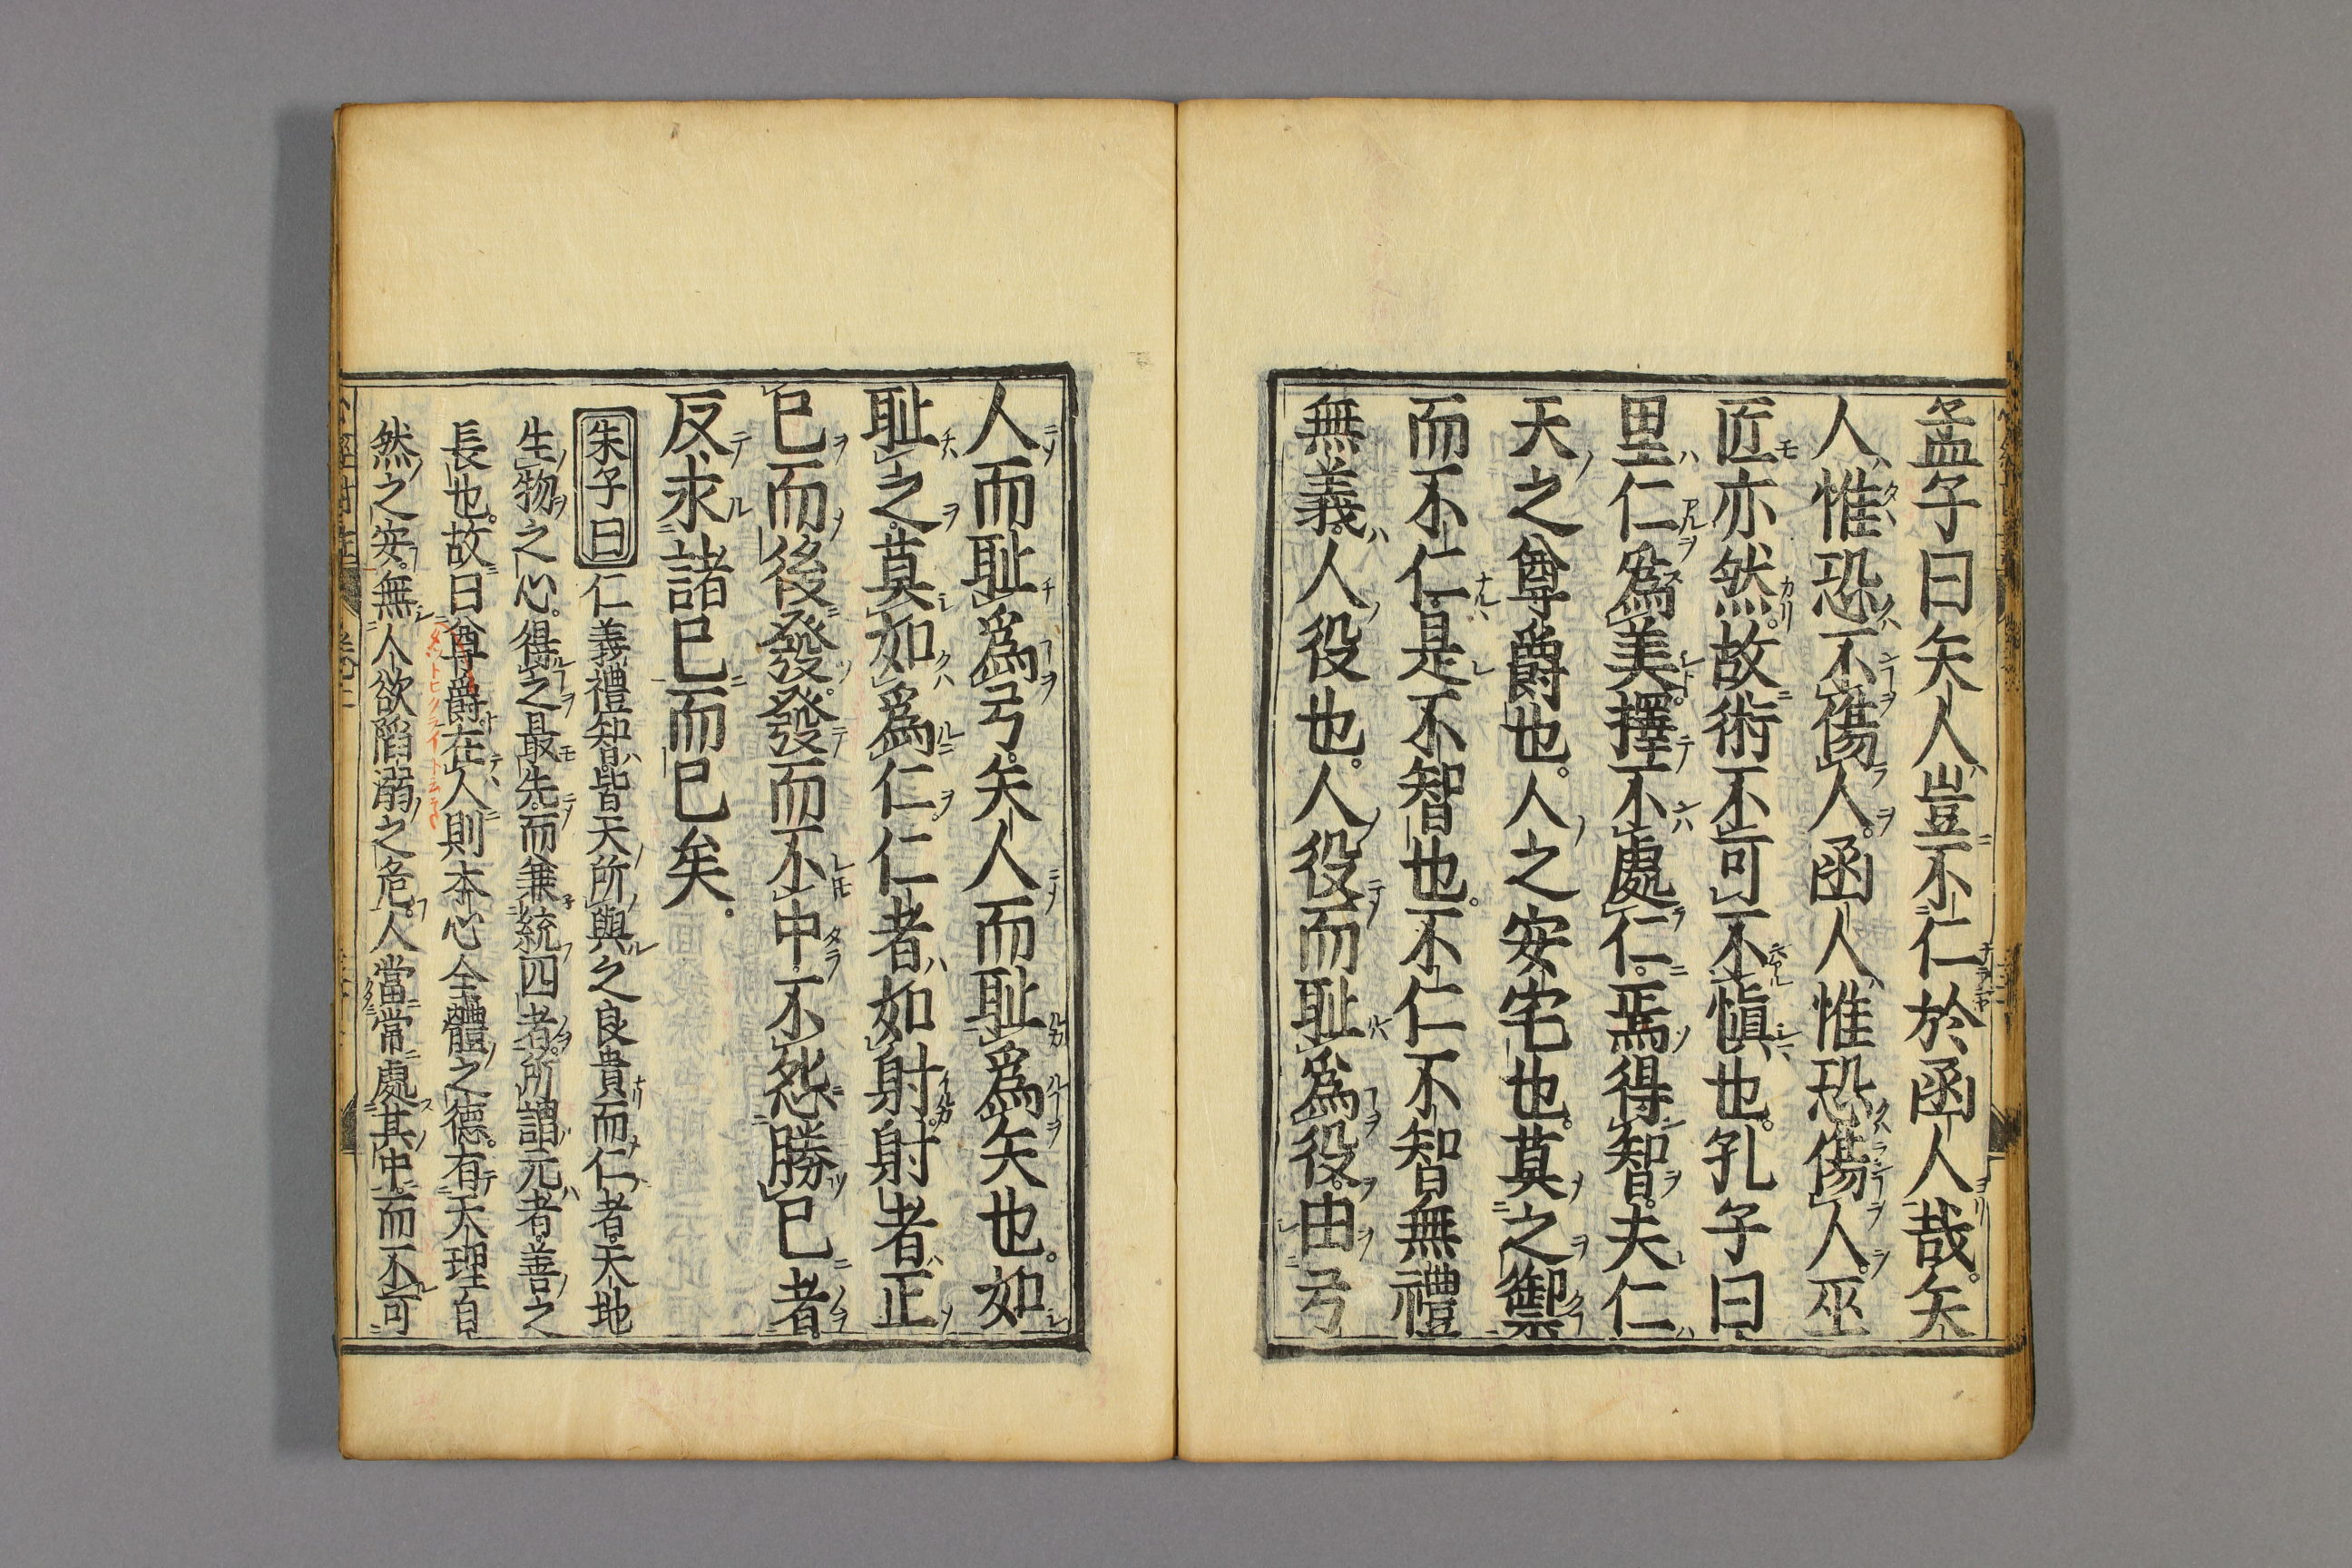 孟子曰矢人豈不仁於函人哉。矢
人惟恐不傷人。函人惟恐傷人。巫
匠亦然。故術不可不愼也。孔子曰
里仁爲美。擇不處仁。焉得智。夫仁
天之尊爵也。人之安宅也。莫之禦
而不仁。是不智也。不仁不智無禮
無義。人役也。人役而恥爲役。由弓
人而恥爲弓。矢人而恥爲矢也。如
恥之。莫如爲仁。仁者如射。射者正
已而後發。發而不中。不怨勝已者
反求諸已而已矣。
朱子曰 仁義禮智。皆天所與之良貴。而仁者。天地
生物之心。得之最先。而兼統四者。所謂元者。善之
長也。故曰尊爵。在人則本心全體之德。有天理自
然之安。無人欲陷溺之危。人當常處其中。而不可